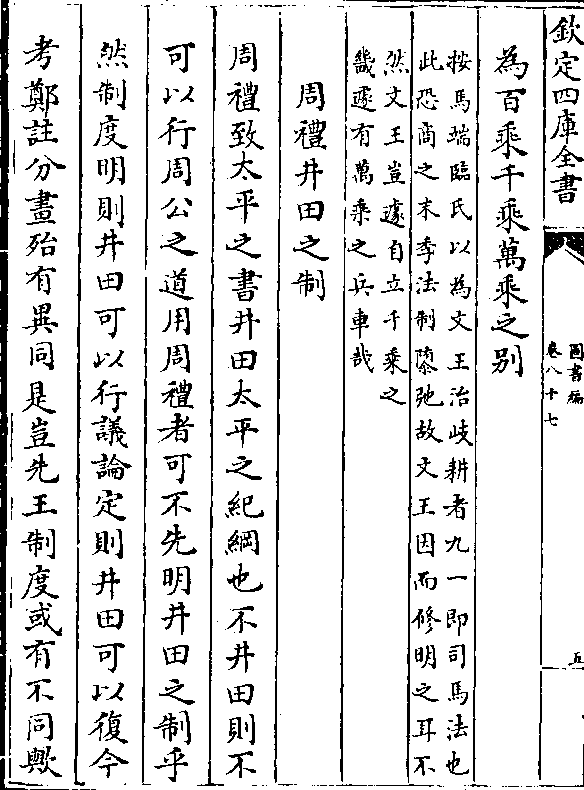 欽定四庫全書
圖書編
卷八十七
五
為百乘千乘萬乘之别
按馬端臨氏以為文王治岐耕者九一即司馬法也
此恐商之末季法制隳弛故文王因而修明之耳不
然文王豈遽自立千乘之
畿遽有萬乘之兵車哉
周禮井田之制
周禮致太平之書井田太平之紀綱也不井田則不
可以行周公之道用周禮者可不先明井田之制乎
然制度明則井田可以行議論定則井田可以復今
考鄭註分畫殆有異同是豈先王制度或有不同歟